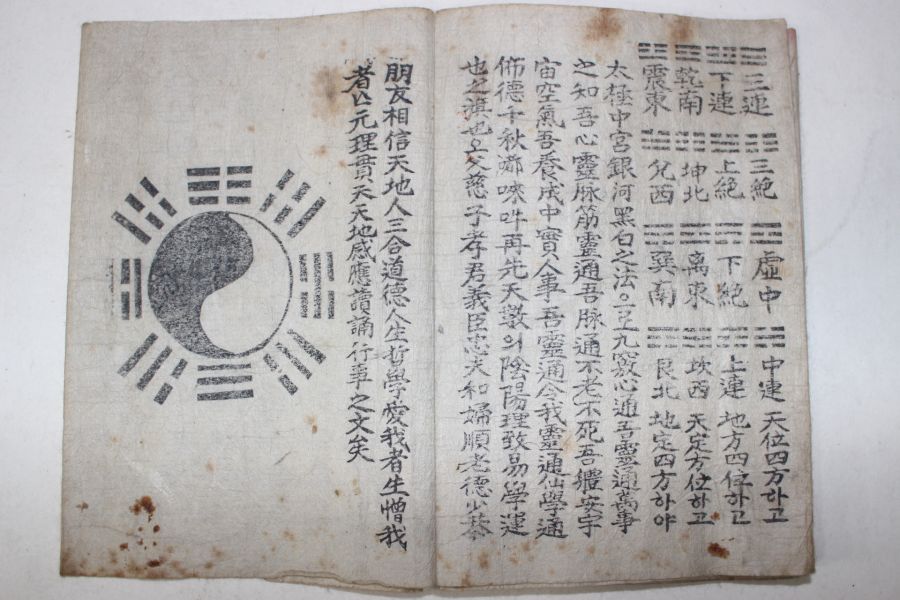 三連 三絶 虛中 中連 天位四方하고
下連 上絶 下絶 上連 地方四位하고
乾南 坤北 离東 坎西 天定方位하고
震東 兌西 巽南 艮北 地定四方하야
太極中宮銀河黑白之法으로九竅心通吾靈通萬事
之知吾心靈脉筋靈通吾脉通不老不死吾體安宇
宙空氣吾養成中實人事吾靈通今我靈通仙學通
佈德千秋吽再先天數의陰陽理致易學運
也之旗也오父慈子孝君義臣忠夫和婦順老德少恭
朋友相信天地人三合道德人生哲學愛我者生憎我
者亡元理貫天天地感應讀誦行事之文矣